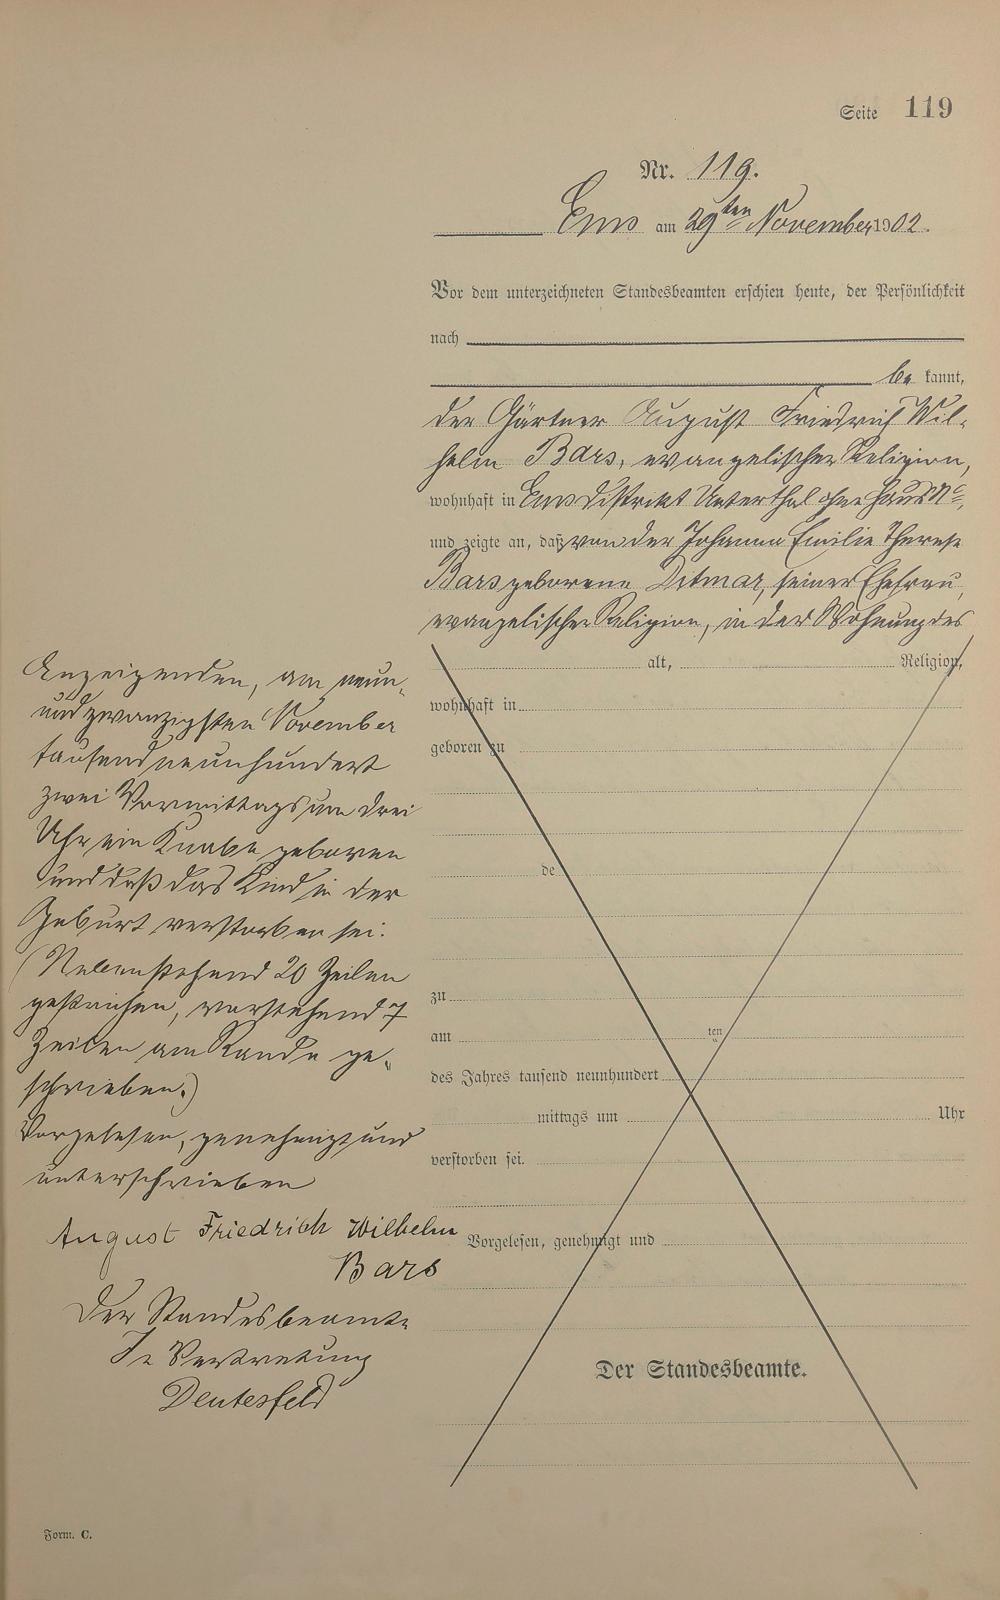 Seite 119
Nr. 119.
Ems am 29ten November 1902.
Vor dem unterzeichneten Standesbeamten erschien heute, der Persönlichkeit
nach
be kannt,
der Gärtner August Friedrich Wil-
helm Bars, evangelischer Religion,
wohnhaft in Ems Distrikt Unterthal ohne Haus No,
und zeigte an, daß von der Johanna Emilie Therese
Bars geborene Ditmar, seiner Ehefrau,
evangelischer Religion, in der Wohnung des
alt, Religion,
wohnhaft in
geboren zu
de
zu
am ten
des Jahres tausend neunhundert
mittags um Uhr
verstorben sei.
Vorgelesen, genehmigt und
Der Standesbeamte.
Anzeigenden, am neun-
und zwanzigsten November
tausend neunhundert
zwei Vormittags um drei
Uhr ein Knabe geboren
und daß das Kind in der
Geburt verstorben sei.
(Nebenstehend 20 Zeilen
gestrichen, vorstehend 7
Zeilen am Rande ge-
schrieben.)
Vorgelesen, genehmigt und
unterschrieben
August Friedrich Wilhelm
Bars
Der Standesbeamte
In Vertretung
Deutesfeld
Form. C.